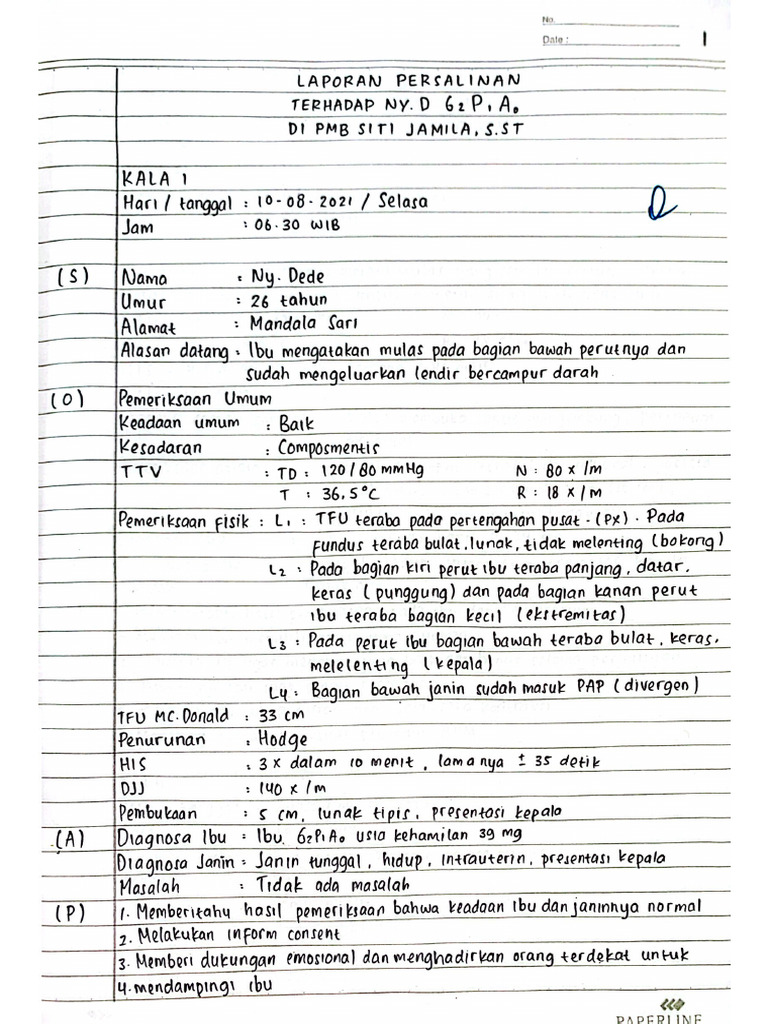 No.
Date :
1
LAPORAN PERSALINAN
TERHADAP NY. D G2P1A0
DI PMB SITI JAMILA, S.ST
KALA 1
Hari / tanggal : 10-08-2021 / Selasa
Jam : 06.30 WIB
(S) Nama : Ny. Dede
Umur : 26 tahun
Alamat : Mandala Sari
Alasan datang : Ibu mengatakan mulas pada bagian bawah perutnya dan
sudah mengeluarkan lendir bercampur darah
(O) Pemeriksaan Umum
Keadaan umum : Baik
Kesadaran : Composmentis
TTV : TD : 120/80 mmHg N : 80 x /m
T : 36,5°C R : 18 x / m
Pemeriksaan fisik : L1 : TFU teraba pada pertengahan pusat - (Px). Pada
fundus teraba bulat, lunak, tidak melenting (bokong)
L2 : Pada bagian kiri perut ibu teraba panjang, datar,
keras (punggung) dan pada bagian kanan perut
ibu teraba bagian kecil (ekstremitas)
L3 : Pada perut ibu bagian bawah teraba bulat, keras,
melelenting (kepala)
L4 : Bagian bawah janin sudah masuk PAP (divergen)
TFU MC. Donald : 33 cm
Penurunan : Hodge
HIS : 3x dalam 10 menit, lamanya ± 35 detik
DJJ : 140 x /m
Pembukaan : 5 cm, lunak tipis, presentasi kepala
(A) Diagnosa Ibu : Ibu. G2P1A0 usia kehamilan 39 mg
Diagnosa Janin : Janin tunggal, hidup, intrauterin, presentasi kepala
Masalah : Tidak ada masalah
(P) 1. Memberitahu hasil pemeriksaan bahwa keadaan ibu dan janinnya normal
2. Melakukan inform consent
3. Memberi dukungan emosional dan menghadirkan orang terdekat untuk
4. mendampingi ibu
PAPERLINE